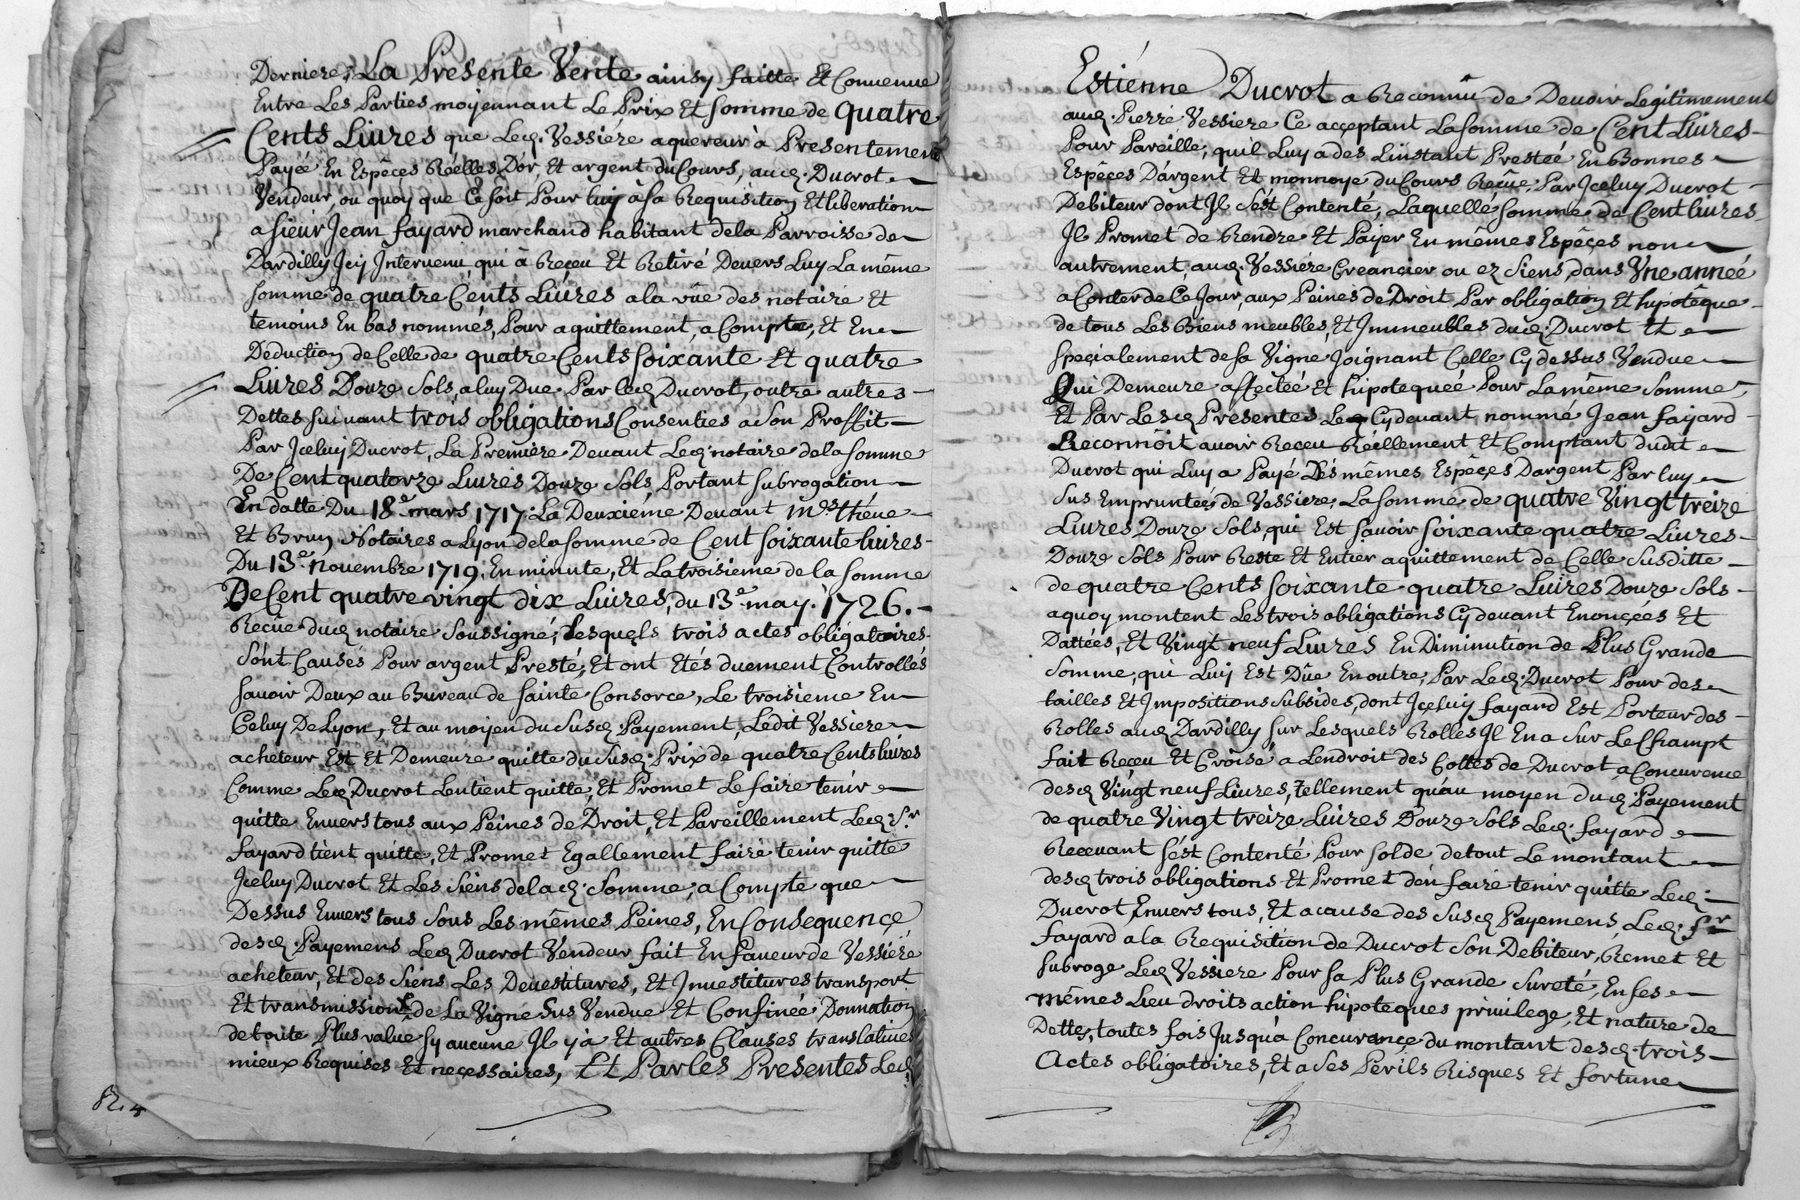 Derniere, La Presente Vente ainsy faitte Et Convenue
Entre Les Parties moyennant Le Prix Et somme de quatre
Cents Livres que Led. Vessiere aquereur à Presentement
Payé En Espêces Réelles D'or, Et argent du Cours, aud. Ducrot
Vendeur, ou quoy que Ce soit Pour luy à sa Requisition Et liberation
a sieur Jean fayard marchand habitant dela Parroisse de
Dardilly Jcy Jntervenu, qui à Reçeu Et Retiré Devers Luy La même
somme de quatre Cents Livres a la vûe des notaire Et
temoins En bas nommés, Pour aquittement, a Compte, Et En
Deduction de Celle de quatre Cents soixante Et quatre
Livres Douze Sols a luy Due Par Led. Ducrot, outre autres
Dettes suivant trois obligations Consenties a Son Proffit
Par Jceluy Ducrot, La Premiere Devant Led. notaire dela somme
De Cent quatorze Livres Douze Sols Portant subrogation
En datte Du 18e. mars 1717. La Deuxiéme Devant mes. théve
Et Bruy Notaires a Lyon dela somme de Cent soixante livres
Du 13e. novembre 1719. En minute, Et La troisieme de la somme
De Cent quatre vingt dix Livres, du 13e. may. 1726.
Reçûe dud. notaire Soussigné, Lesquels trois actes obligatoires
sont Causés Pour argent Presté, Et ont Etés duement Controllés
savoir Deux au Bureau de sainte Consorce, Le troisieme En
Celuy De Lyon, Et au moyen du susd. Payement, Ledit Vessiere
acheteur Est Et Demeure quitte du susd. Prix de quatre Cents livres
Comme Led. Ducrot L'entient quitte, Et Promet Le faire tenir
quitte Envers tous aux Peines de Droit, Et Pareillement Led. Sr.
fayard tient quitte, Et Promet Egallement faire tenir quitte
Jceluy Ducrot Et Les Siens dela d. Somme, a Compte que
Dessus Envers tous Sous Les mêmes Peines, En Consequence
desd. Payemens Led. Ducrot Vendeur fait En faveur de Vessiere
acheteur, Et des Siens Les Devestitures, Et Jnvestitures transport
Et transmission de La Vigne Sus Vendue Et Confinée Donnation
de toute Plus value sy aucune Jl y à Et autres Clauses translatives
mieux Requises Et necessaires, Et Par les Presentes Led.
Estiénne Ducrot a Reconnû de Devoir Legitimement
aud. Pierre Vessiere Ce acçeptant La somme de Cent Livres
Pour Pareille, qu'il Luy a des L'instant Prestée En Bonnes
Espêçes D'argent Et monnoye du Cours Reçûe Par Jceluy Ducrot
Debiteur dont Jl s'est Contenté, Laquelle somme de Cent livres
Jl Promet de Rendre Et Payer En mêmes Espêçes non
autrement, aud. Vessiere Creancier ou ez Siens, dans Vne année
a Conter de Ce Jour, aux Peines de Droit Par obligation Et hipotêque
de tous Les Biens meubles, Et Jmmeubles dud. Ducrot Et
specialement de sa Vigne Joignant Celle Cy dessus Vendue
Qui Demeure affectéé Et hipotequéé Pour La même Somme
Et Par Lesd. Presentes Le Cydevant nommé Jean fayard
Reconnoit avoir Reçeu Réellement Et Comptant dudit
Ducrot qui Luy a Payé Des mêmes Espêçes D'argent Par luy
sus Empruntées de Vessiere, La Somme de quatre Vingt treize
Livres Douze Sols, qui Est savoir soixante quatre Livres
Douze Sols Pour Reste Et Entier aquittement de Celle Susditte
de quatre Cents soixante quatre Livres Douze Sols
aquoy montent Les trois obligations Cy devant Enonçées Et
Dattées, Et Vingt neuf Livres En Diminution de Plus Grande
Somme, qui Luy Est Dûe En outre, Par Led. Ducrot Pour des
tailles Et Jmpositions Subsides, dont Jceluy fayard Est Porteur des
Rolles aud. Dardilly sur Lesquels Rolles Jl En a Sur Le Champt
fait Reçeu Et Croisé a L'endroit des Cottes de Ducrot a Concurence
desd. Vingt neuf Livres, tellement qu'au moyen dud. Payement
de quatre Vingt treize Livres Douze Sols Led. fayard
Recevant s'est Contenté Pour solde de tout Le montant
desd. trois obligations Et Promet d'en faire tenir quitte Led.
Ducrot Envers tous, Et acause des susd. Payemens, Led. Sr
fayard a la Requisition de Ducrot Son Debiteur, Remet Et
subroge Led. Vessiere Pour sa Plus Grande Sureté, En ses
mêmes Lieu droits action hipoteques privilege, Et nature de
Dette, toutes fois Jusqu'à Concurançe du montant desd. trois
Actes obligatoires, Et a Ses Périls Risques Et fortune